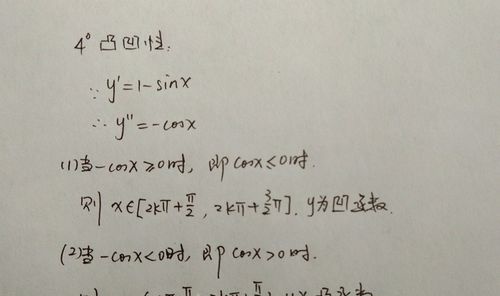 4° 凸凹性:
∵ y'=1-sinx
∴ y''=-cosx
(1)当-cosx≥0时, 即cosx≤0时.
则 x∈[2kπ+π/2, 2kπ+3/2π]. y为凹函数.
(2)当-cosx<0时, 即cosx>0时.